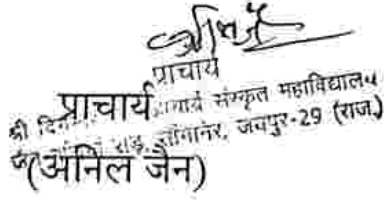 प्राचार्य
प्राचार्य
श्री दिग आचार्य संस्कृत महाविद्यालय
रोड, सांगानेर, जयपुर-29 (राज.)
(अनिल जैन)